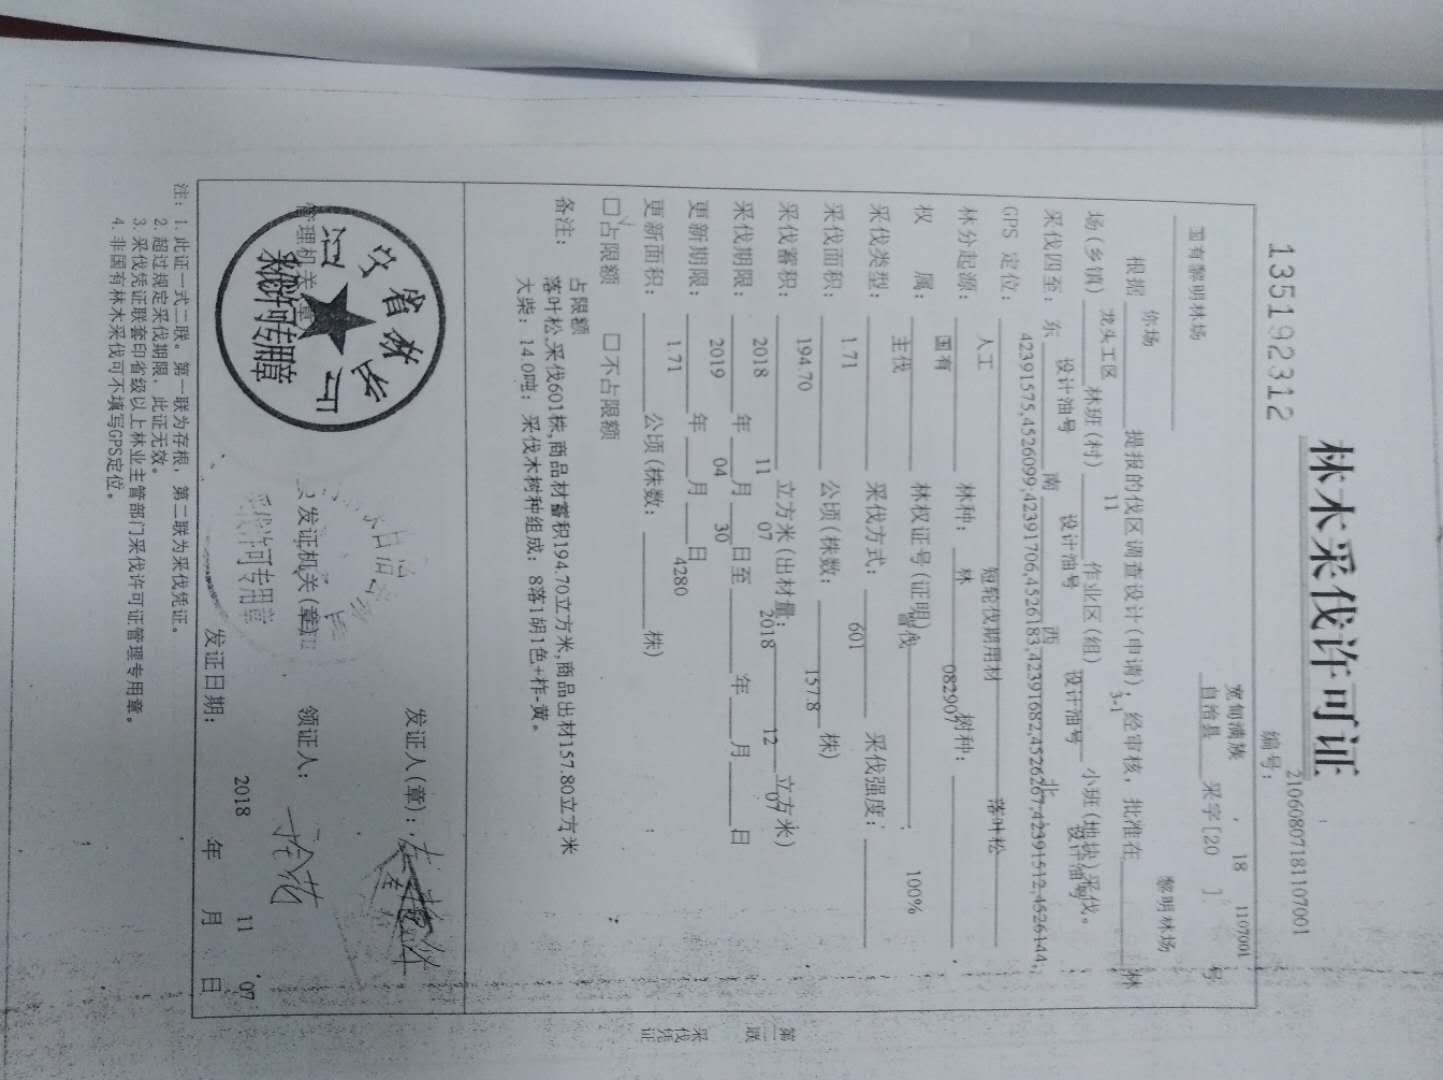 林木采伐许可证
135192312
编号：
210608071811107001
宽甸满族 18 1107001
国有黎明林场 自治县 采字[20 ] 号
根据 你场 提报的伐区调查设计(申请)，经审核，批准在 黎明林场 林
场(乡镇) 龙头工区 林班(村) 11 作业区(组) 3-1 小班(地块)采伐。
采伐四至：东 设计油号 南 设计油号 西 设计油号 北 设计油号
GPS 定位： 42391575,4526099,42391706,4526183,42391682,4526267,42391512,4526144,
林分起源： 人工 林种： 短轮伐期用材林 树种： 落叶松
权属： 国有 林权证号(证明) 082907
采伐类型： 主伐 采伐方式： 皆伐 采伐强度： 100%
采伐面积： 1.71 公顷(株数： 601 株)
采伐蓄积： 194.70 立方米(出材量： 157.8 立方米)
采伐期限： 2018 年 11 月 07 日至 2018 年 12 月 07 日
更新期限： 2019 年 04 月 30 日
更新面积： 1.71 公顷(株数： 4280 株)
☑占限额 □不占限额
备注： 占限额
落叶松,采伐601株,商品材蓄积194.70立方米,商品出材157.80立方米
大柴：14.0吨；采伐木树种组成：8落1胡1色+柞-黄。
发证人(章)：
管理机关(章)
采伐许可专用章
发证机关(章)
采伐许可专用章
领证人：
发证日期： 2018 年 11 月 07 日
注：1. 此证一式二联。第一联为存根，第二联为采伐凭证。
2. 超过规定采伐期限，此证无效。
3. 采伐凭证联套印省级以上林业主管部门采伐许可证管理专用章。
4. 非国有林木采伐可不填写GPS定位。
第二联 采伐凭证